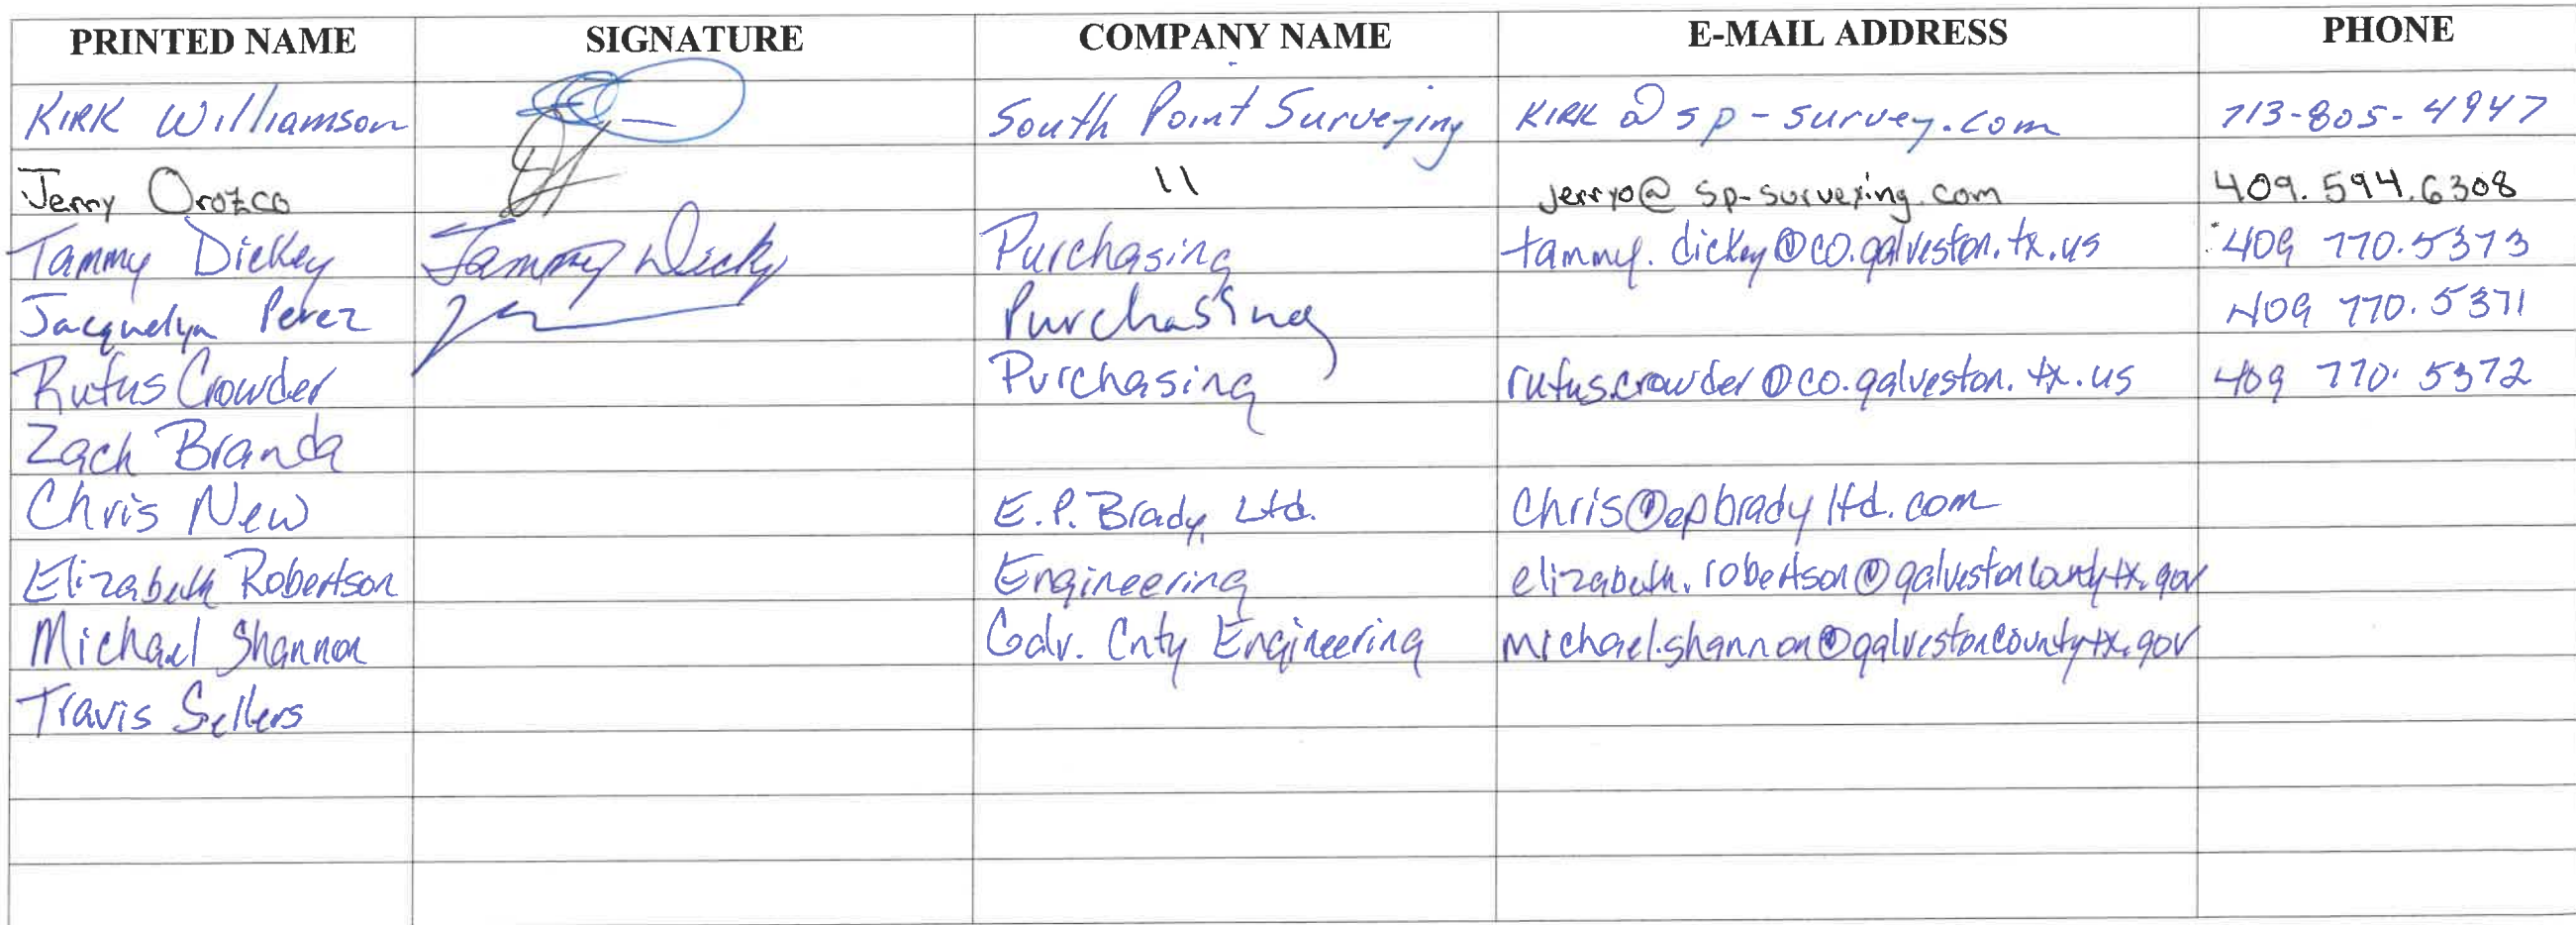 PRINTED NAME SIGNATURE COMPANY NAME E-MAIL ADDRESS PHONE
KIRK Williamson South Point Surveying KIRK @ sp-survey.com 713-805-4947
Jerry Orozco 11 jerryo@sp-surveying.com 409.594.6308
Tammy Dickey Tammy Dicky Purchasing tammy.dickey@co.galveston.tx.us 409 770.5373
Jacquelyn Perez Purchasing 409 770.5371
Rufus Crowder Purchasing rufus.crowder@co.galveston.tx.us 409 770.5372
Zach Branda
Chris New E.P. Brady, Ltd. Chris@epbradyltd.com
Elizabeth Robertson Engineering elizabeth.robertson@galvestoncountytx.gov
Michael Shannon Galv. Cnty Engineering michael.shannon@galvestoncountytx.gov
Travis Sellers